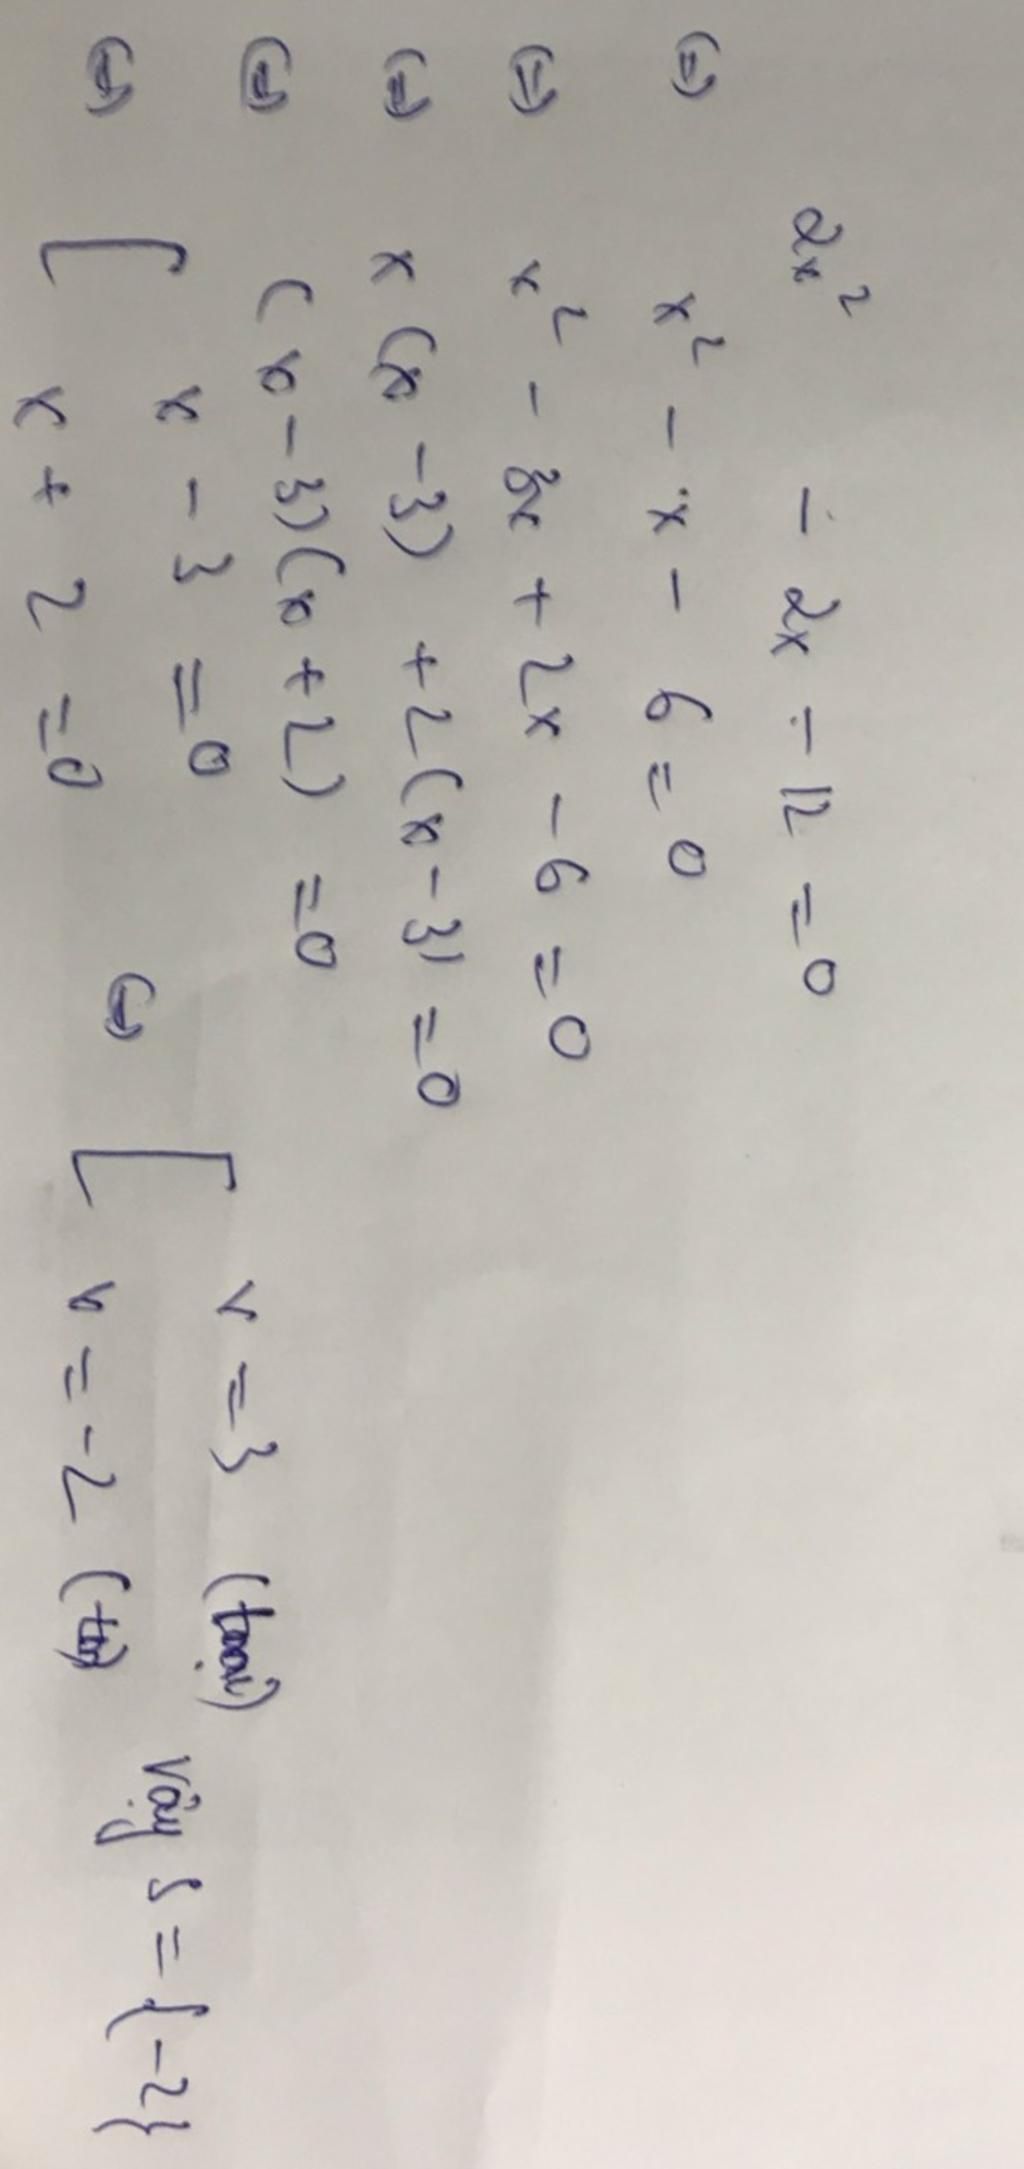 2x² - 2x - 12 = 0
(=) x² - x - 6 = 0
(=) x² - 3x + 2x - 6 = 0
(=) x(x - 3) + 2(x - 3) = 0
(=) (x - 3)(x + 2) = 0
(=) [ x - 3 = 0 (=) [ x = 3 (loại)
x + 2 = 0 x = -2 (tm) Vậy S = {-2}